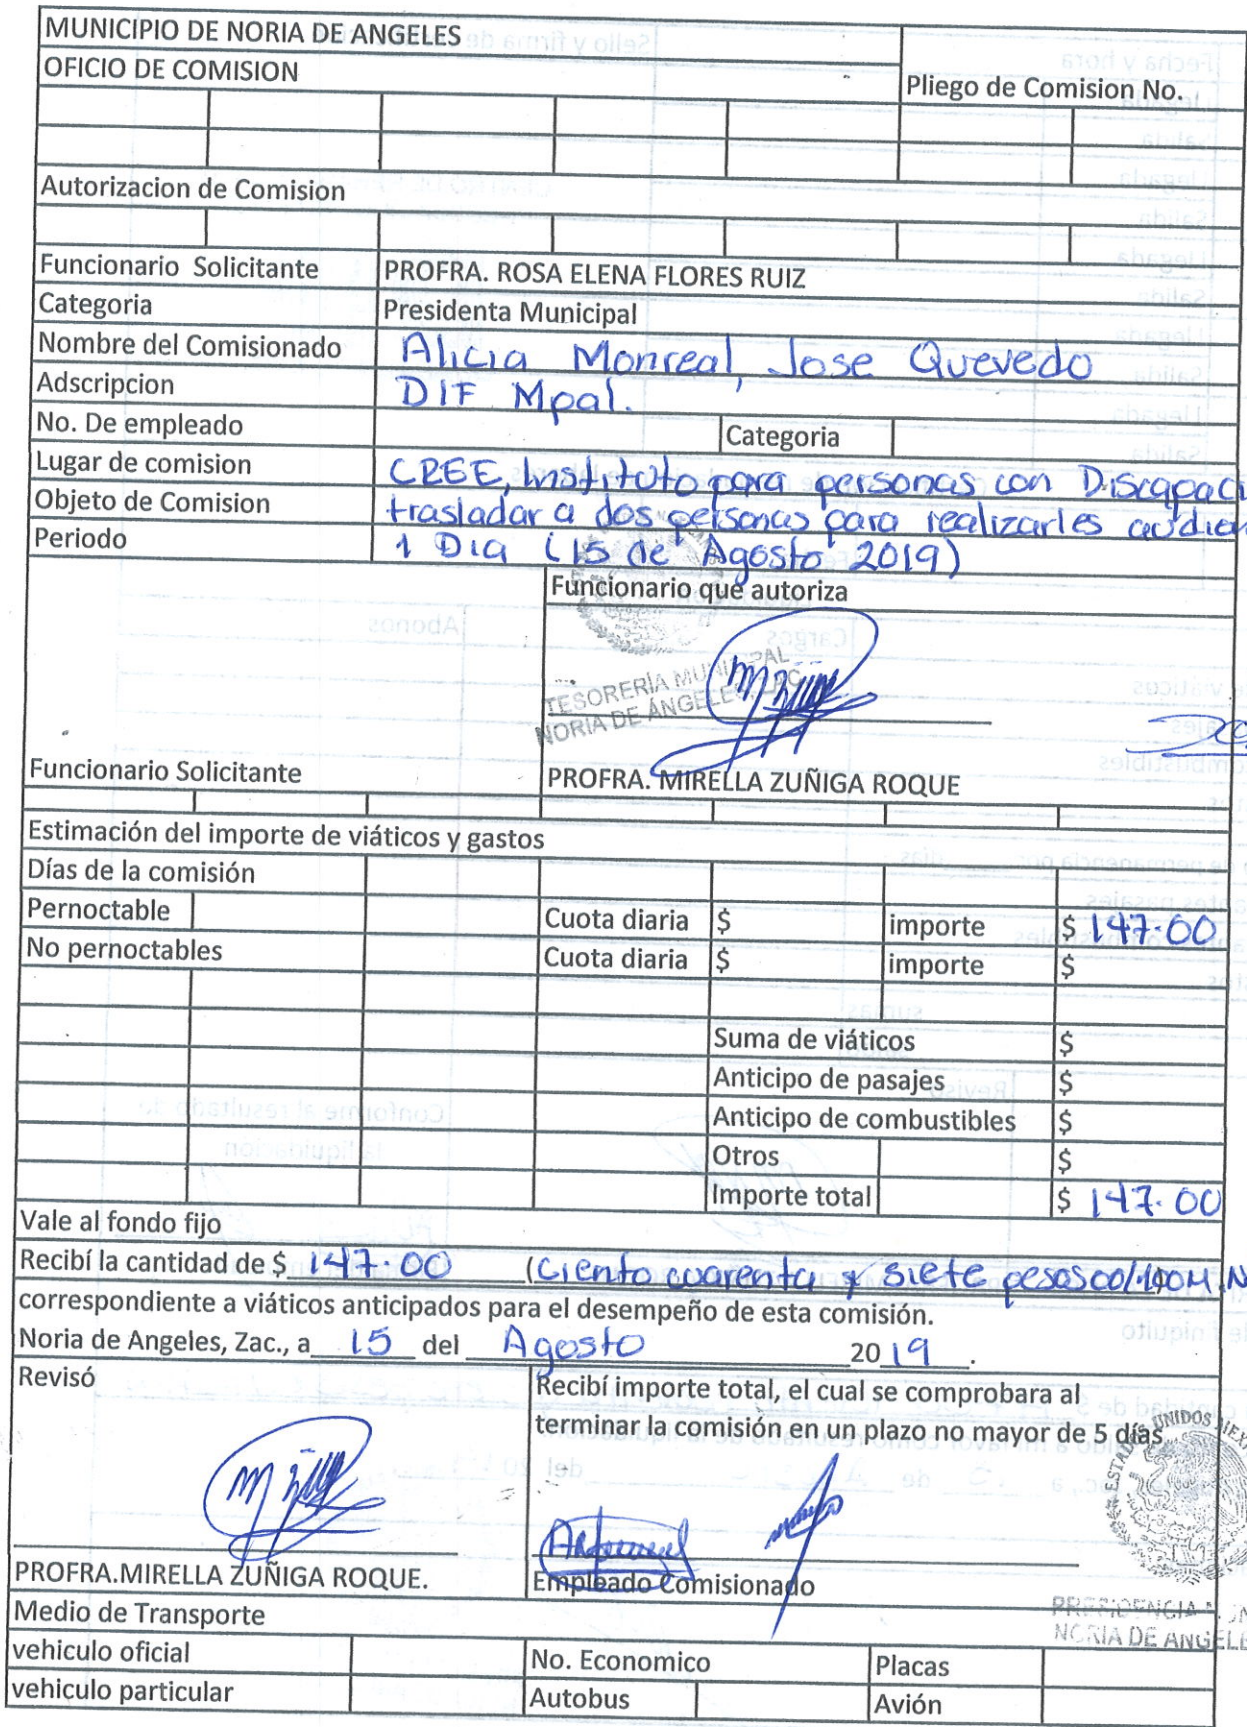 MUNICIPIO DE NORIA DE ANGELES
OFICIO DE COMISION
Pliego de Comision No.
Autorizacion de Comision
Funcionario Solicitante PROFRA. ROSA ELENA FLORES RUIZ
Categoria Presidenta Municipal
Nombre del Comisionado Alicia Monreal, Jose Quevedo
Adscripcion DIF Mpal.
No. De empleado Categoria
Lugar de comision CREE, Instituto para personas con Discapaci
Objeto de Comision trasladar a dos personas para realizarles audien
Periodo 1 Dia (15 de Agosto 2019)
Funcionario que autoriza
TESORERÍA MUNICIPAL
NORIA DE ÁNGELES, ZAC.
Funcionario Solicitante PROFRA. MIRELLA ZUÑIGA ROQUE
Estimación del importe de viáticos y gastos
Días de la comisión
Pernoctable Cuota diaria $ importe $ 147.00
No pernoctables Cuota diaria $ importe $
Suma de viáticos $
Anticipo de pasajes $
Anticipo de combustibles $
Otros $
Importe total $ 147.00
Vale al fondo fijo
Recibí la cantidad de $ 147.00 (Ciento cuarenta y siete pesos 00/100 M.N
correspondiente a viáticos anticipados para el desempeño de esta comisión.
Noria de Angeles, Zac., a 15 del Agosto 2019.
Revisó
Recibí importe total, el cual se comprobara al
terminar la comisión en un plazo no mayor de 5 días
ESTADOS UNIDOS MEX
PROFRA.MIRELLA ZUÑIGA ROQUE.
Empleado Comisionado
PRESIDENCIA MUN
NORIA DE ANGELE
Medio de Transporte
vehiculo oficial No. Economico Placas
vehiculo particular Autobus Avión